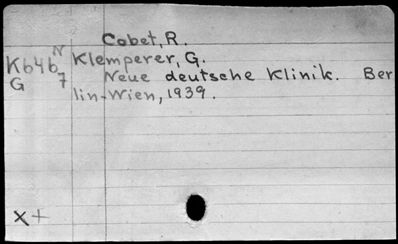 Cobet, R.
K646 N7 Klemperer, G.
G Neue deutsche Klinik. Ber
lin-Wien, 1939.
X+